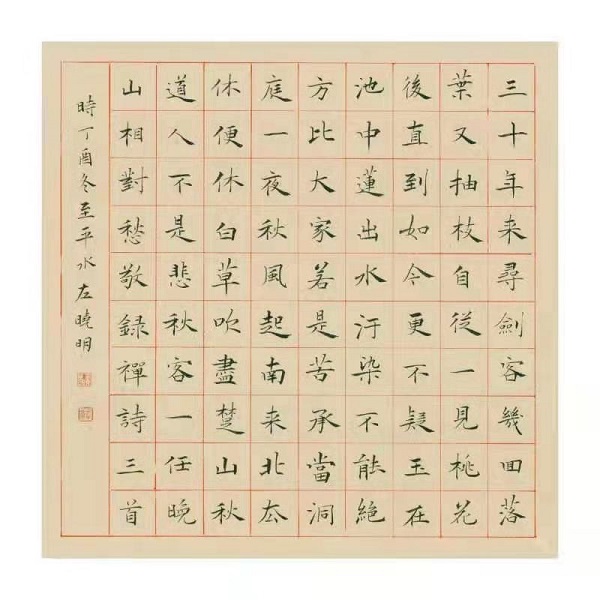 三十年来尋劍客幾回落
葉又抽枝自從一見桃花
後直到如今更不疑玉在
池中蓮出水汙染不能絕
方比大家若是苦承當洞
庭一夜秋風起南来北去
休便休白草吹盡楚山秋
道人不是悲秋客一任晚
山相對愁敬錄禪詩三首
時丁酉冬至平水左曉明